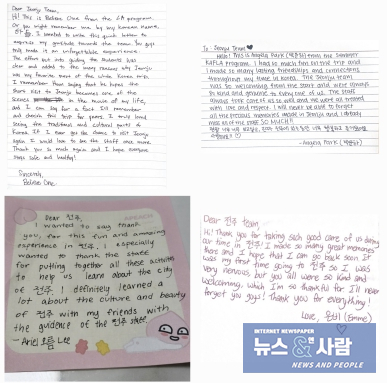 Dear Jeonju Team,
Hi! This is Belicia One from the LA program.
You might remember me by my Korean name,
I wanted to write this quick letter to
express my gratitude towards the team. You guys
truly made it an unforgettable experience.
The effort put into guiding the students was
clear and added to the many reasons why Jeonju
was my favorite part of the whole Korea trip.
I remember Tom saying that he hopes the
short visit to Jeonju becomes one of the
scenes in the movie of my life,
and I can say for a fact I'll remember
and cherish this trip for years. I truly loved
seeing the traditional and cultural parts of
Korea. If I ever get the chance to visit Jeonju
again I would love to see the staff once more.
Thank you so much again and I hope everyone
stays safe and healthy!
Sincerely,
Belicia One.
To. Jeonju Team ♡
Hello! This is Angela Park (박한나) from the Summer
KAFLA program. I had so much fun on the trip and
I made so many lasting friendships and connections
throughout my time in Korea. The Jeonju team
was so welcoming from the start and were always
so kind and genuine to every one of us. The staff
always took care of us so well and we were all treated
with love and respect. I will never be able to forget
all the precious memories made in Jeonju and I already
miss all of the staff SO MUCH!!
- Angela Park
Dear 전주,
APEACH
I wanted to say thank
you, for this fun and amazing
experience in 전주, I especially
wanted to thank the staff
for putting together all these activities
to help us learn about the city
of 전주! I definitely learned a
lot about the culture and beauty
of 전주 with my friends with
the guidence of the 전주 staff.
- Ariel 오름 Lee
Dear 전주 team,
Hi! Thank you for taking such good care of us during
our time in 전주! I made so many great memories
there and I hope that I can go back soon. It
was my first time going to 전주 so I was
very nervous, but you all were so kind and
welcoming, which I'm so thankful for. I'll never
forget you guys! Thank you for everything!
Love, (Emme)
INTERNET NEWSPAPER
뉴스&앤 사람
NEWS AND PEOPLE